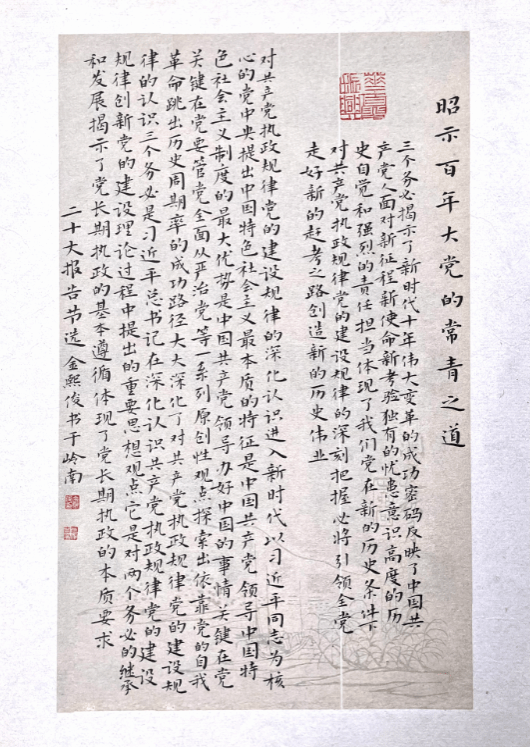 昭示百年大党的常青之道
三个务必揭示了新时代十年伟大变革的成功密码反映了中国共
产党人面对新征程新使命新考验独有的忧患意识高度的历
史自觉和强烈的责任担当体现了我们党在新的历史条件下
对共产党执政规律党的建设规律的深刻把握必将引领全党
走好新的赶考之路创造新的历史伟业
对共产党执政规律党的建设规律的深化认识进入新时代以习近平同志为核
心的党中央提出中国特色社会主义最本质的特征是中国共产党领导中国特
色社会主义制度的最大优势是中国共产党领导办好中国的事情关键在党
关键在党要管党全面从严治党等一系列原创性观点探索出依靠党的自我
革命跳出历史周期率的成功路径大大深化了对共产党执政规律党的建设规
律的认识三个务必是习近平总书记在深化认识共产党执政规律党的建设
规律创新党的建设理论过程中提出的重要思想观点它是对两个务必的继承
和发展揭示了党长期执政的基本遵循体现了党长期执政的本质要求
二十大报告节选金熙俊书于岭南